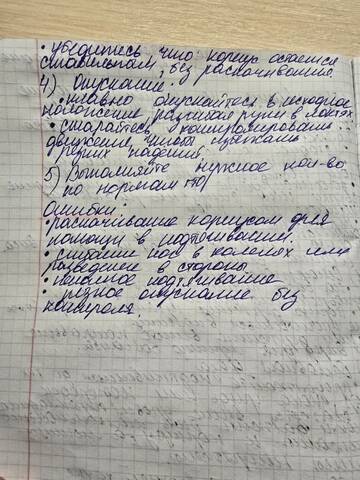 • убедитесь, что корпус остается
стабильным, без раскачивания.
4) Опускание:
• плавно опускайтесь в исходное
положение, разгибая руки в локтях
• старайтесь контролировать
движение, чтобы избежать
резких падений.
5) Выполняйте нужное кол-во
по нормам ГТО
Ошибки:
• раскачивание корпусом для
помощи в подтягивании.
• сгибание ног в коленях или
разведение в стороны
• неполное подтягивание
• резкое опускание без
контроля.